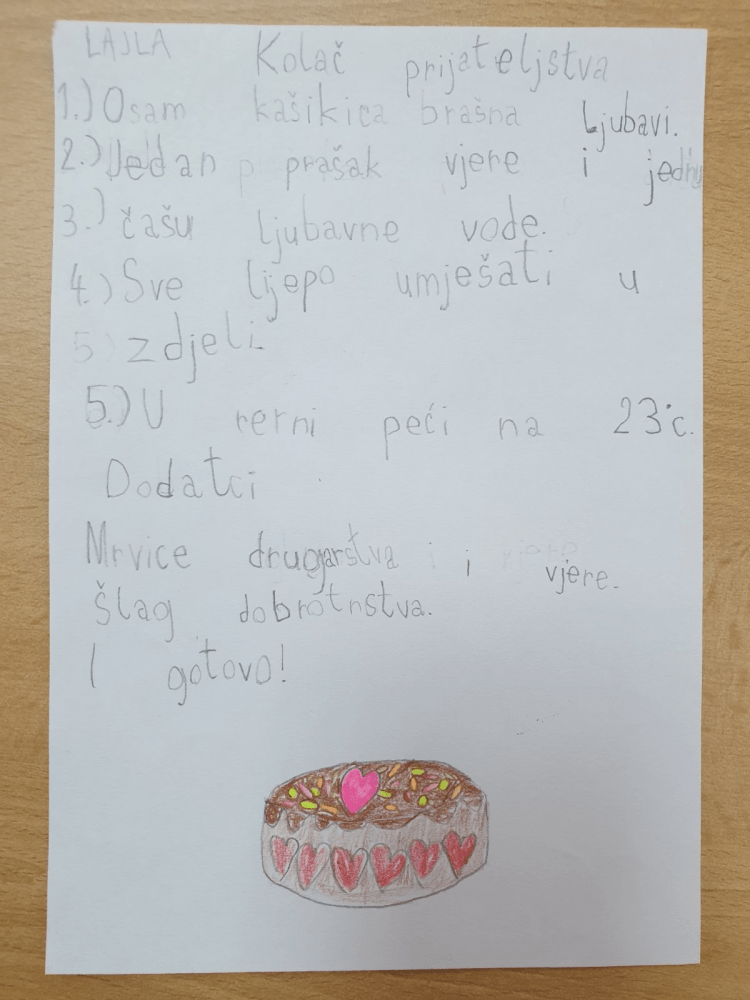 LAJLA Kolač prijateljstva
1.) Osam kašikica brašna Ljubavi.
2.) Jedan prašak vjere i jednu
3.) čašu ljubavne vode.
4.) Sve lijepo umješati u
5.) zdjeli.
5.) U rerni peći na 23°c.
Dodatci
Mrvice drugarstva i vjere.
Šlag dobrotnstva.
I gotovo!